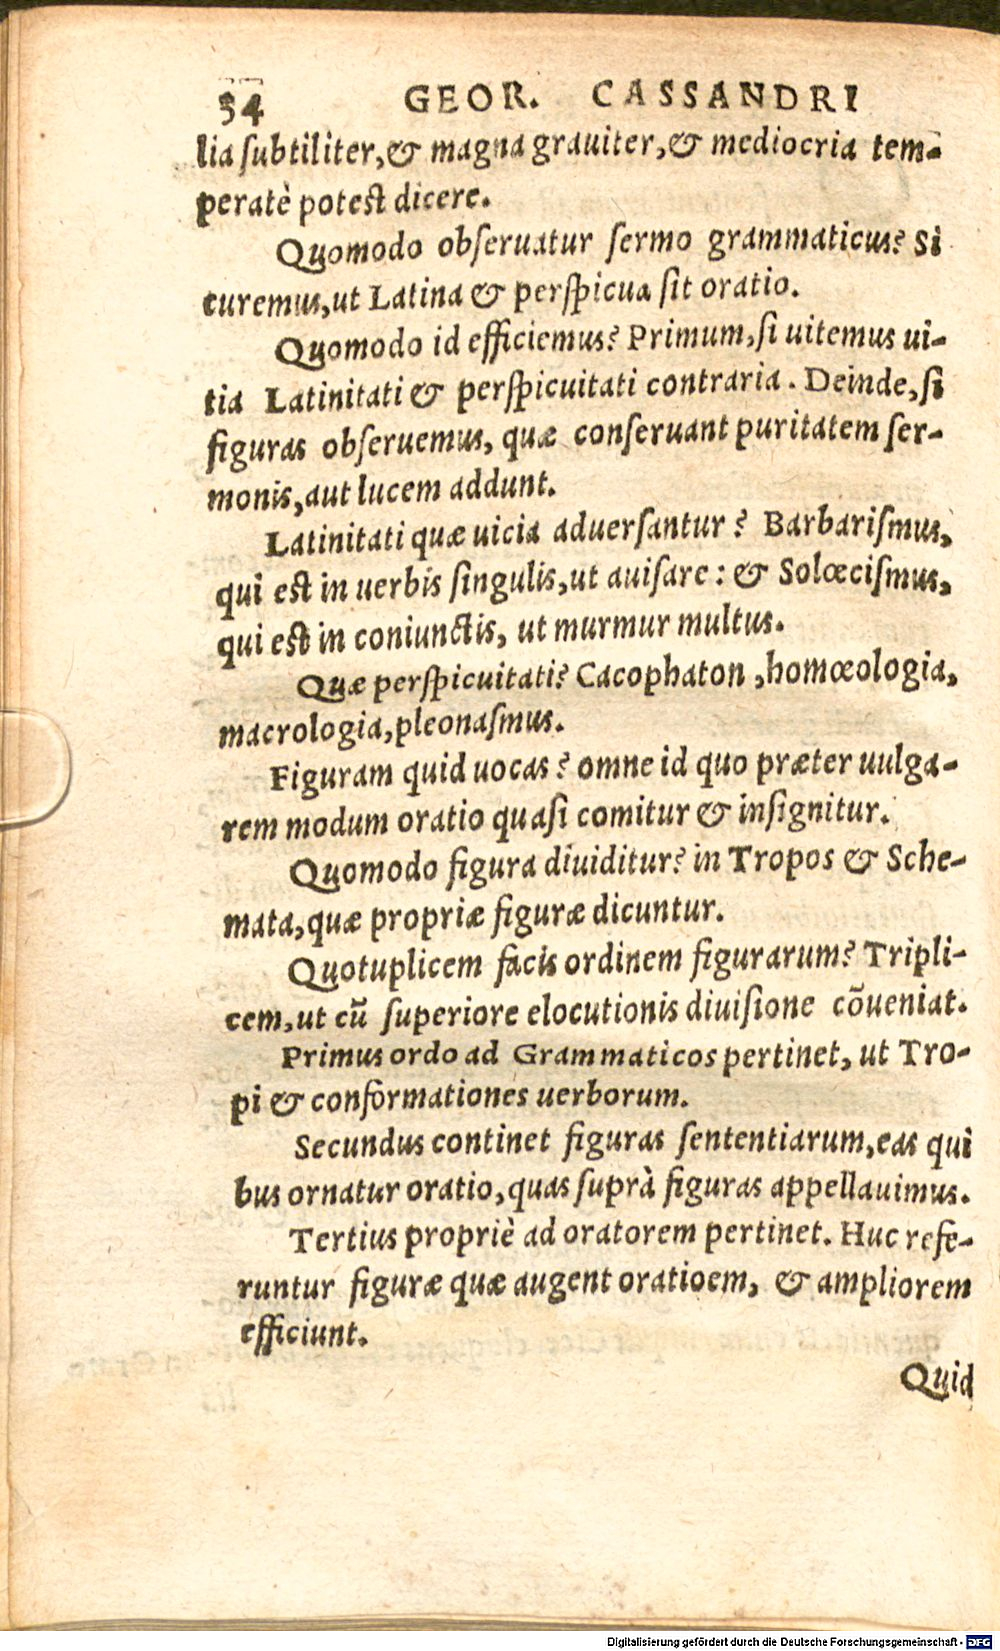 34 GEOR. CASSANDRI
lia subtiliter, & magna grauiter, & mediocria tem-
peratè potest dicere.
Quomodo obseruatur sermo grammaticus? Si
curemus, ut Latina & perspicua sit oratio.
Quomodo id efficiemus? Primum, si uitemus ui-
tia Latinitati & perspicuitati contraria. Deinde, si
figuras obseruemus, quæ conseruant puritatem ser-
monis, aut lucem addunt.
Latinitati quæ uicia aduersantur? Barbarismus,
qui est in uerbis singulis, ut auisare: & Solœcismus,
qui est in coniunctis, ut murmur multus.
Quæ perspicuitati? Cacophaton, homœologia,
macrologia, pleonasmus.
Figuram quid uocas? omne id quo præter uulga-
rem modum oratio quasi comitur & insignitur.
Quomodo figura diuiditur? in Tropos & Sche-
mata, quæ propriæ figuræ dicuntur.
Quotuplicem facis ordinem figurarum? Tripli-
cem, ut cū superiore elocutionis diuisione cōueniat.
Primus ordo ad Grammaticos pertinet, ut Tro-
pi & conformationes uerborum.
Secundus continet figuras sententiarum, eas qui
bus ornatur oratio, quas suprà figuras appellauimus.
Tertius propriè ad oratorem pertinet. Huc refe-
runtur figuræ quæ augent oratioem, & ampliorem
efficiunt.
Quid
Digitalisierung gefördert durch die Deutsche Forschungsgemeinschaft - DFG